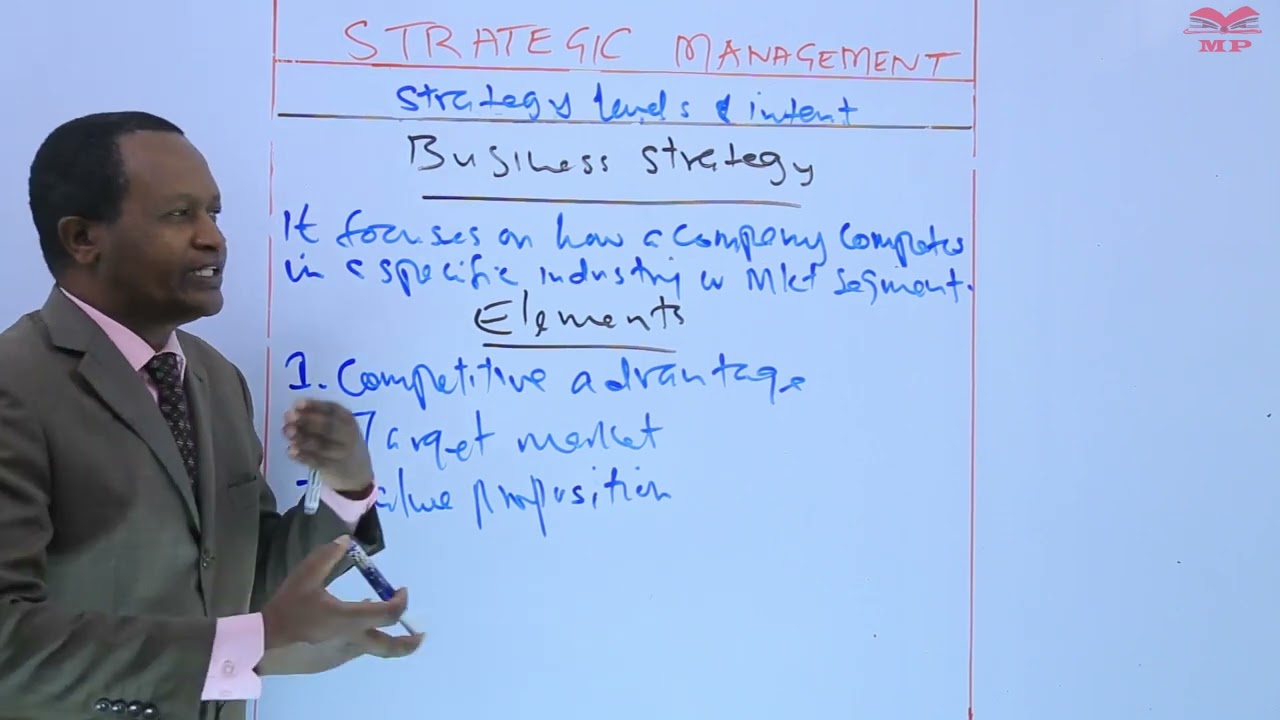 MP
STRATEGIC MANAGEMENT
Strategy levels & intent
Business strategy
It focuses on how a company competes
in a specific industry or Mkt segment.
Elements
1. Competitive advantage
Target market
proposition